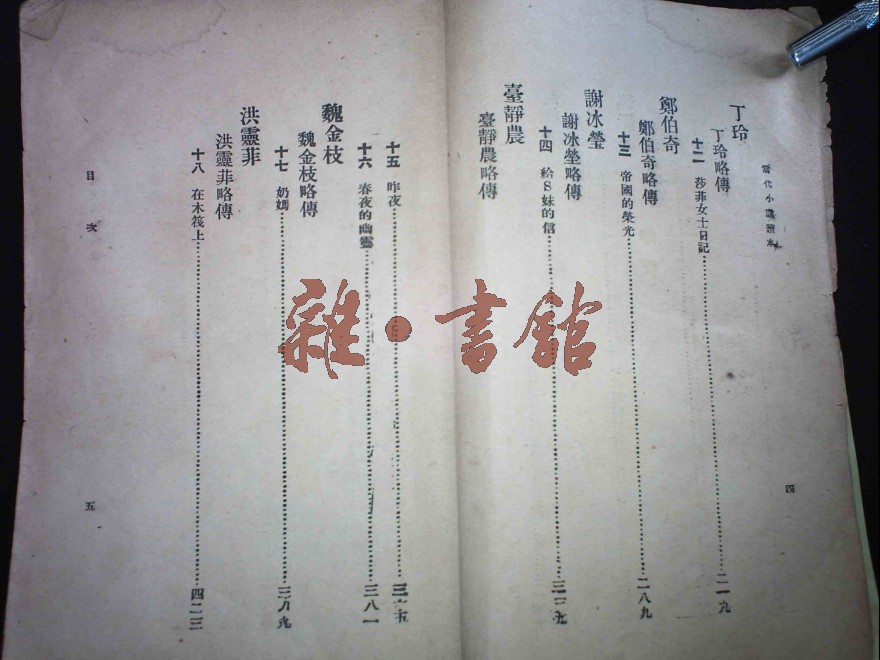 當代小說讀本
丁玲
丁玲略傳
十二 莎菲女士日記……二一九
鄭伯奇
鄭伯奇略傳
十三 帝國的榮光……二八九
謝冰瑩
謝冰瑩略傳
十四 給S妹的信
臺靜農
臺靜農略傳
四
十五 昨夜
十六 春夜的幽靈……三八一
魏金枝
魏金枝略傳
十七 奶媽……三九九
洪靈菲
洪靈菲略傳
十八 在木筏上……四二三
目次
五
雜·書館